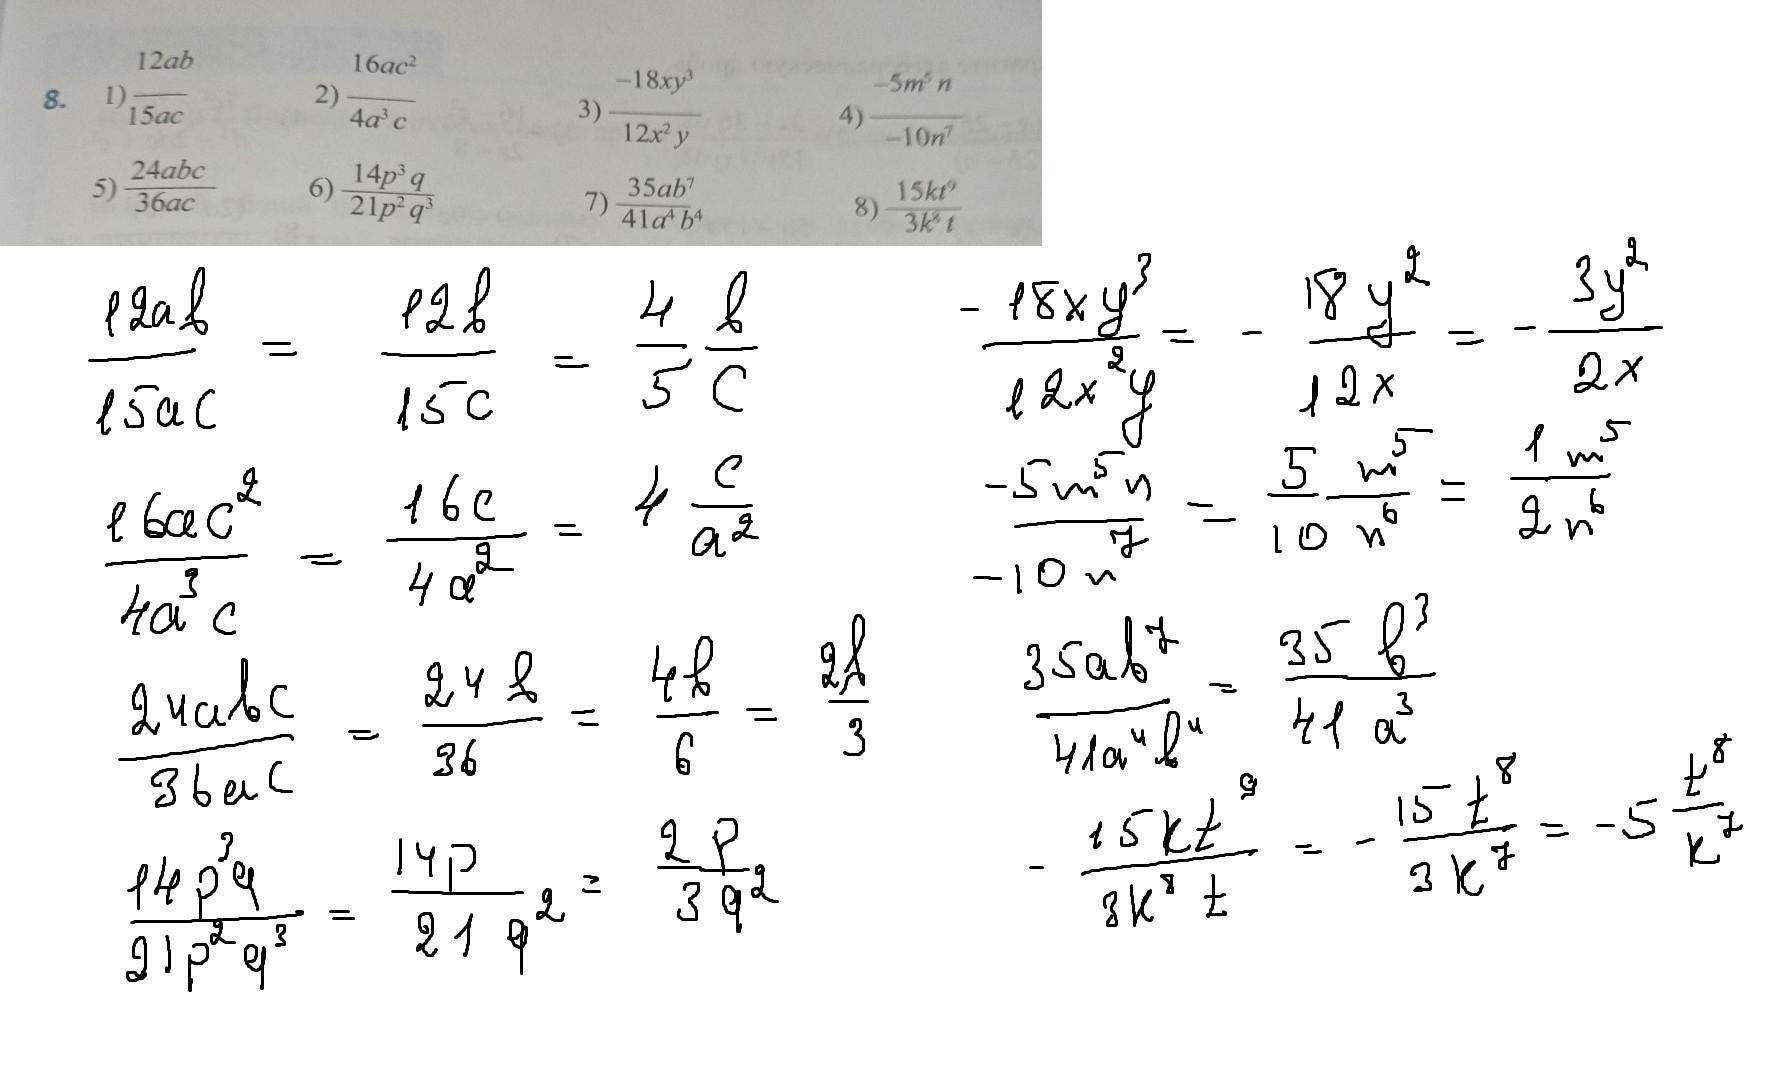 8. 1) 12ab/15ac 2) 16ac²/4a³c 3) −18xy³/12x²y 4) −5m⁵n/−10n⁷
5) 24abc/36ac 6) 14p³q/21p²q³ 7) 35ab⁷/41a⁴b⁴ 8) 15kt⁹/3k⁸t
12ab/15ac = 12b/15c = 4/5 b/c
16ac²/4a³c = 16c/4a² = 4 c/a²
24abc/36ac = 24b/36 = 4b/6 = 2b/3
14p³q/21p²q³ = 14p/21q² = 2p/3q²
− 18xy³/12x²y = − 18y²/12x = − 3y²/2x
−5m⁵n/−10n⁷ = 5/10 m⁵/n⁶ = 1m⁵/2n⁶
35ab⁷/41a⁴b⁴ = 35b³/41a³
− 15kt⁹/3k⁸t = − 15t⁸/3k⁷ = −5 t⁸/k⁷